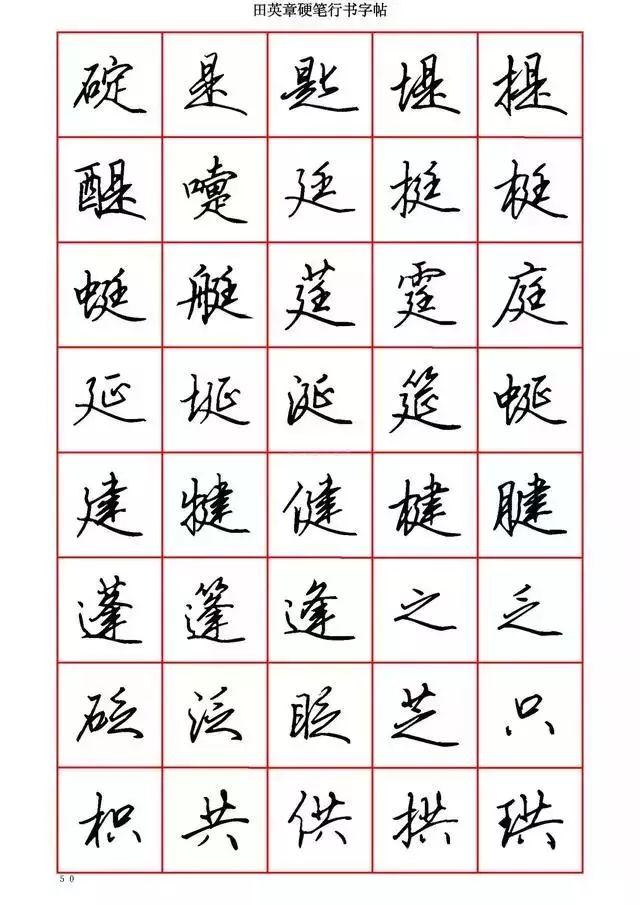 田英章硬笔行书字帖
碇是匙堤提
醍嚏廷挺梃
蜓艇莛霆庭
延埏涎筵蜒
建犍健楗腱
蓬篷逢之乏
砭泛眨芝只
枳共供拱珙
50